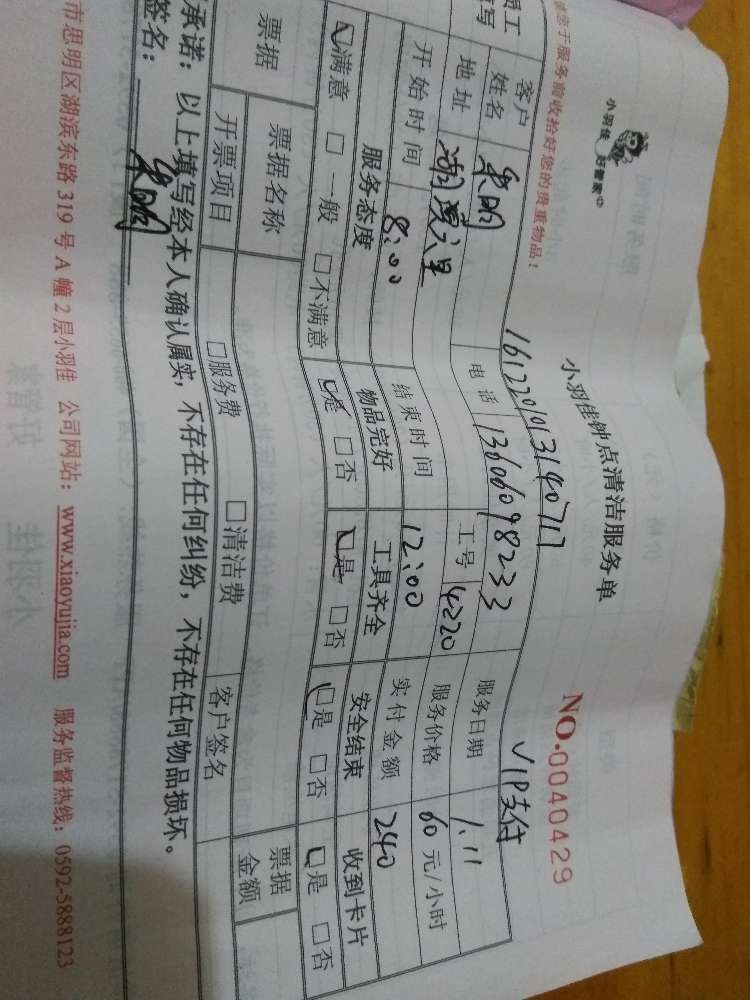 小羽佳 好管家
小羽佳钟点清洁服务单
NO.0040429
于服务前收拾好您的贵重物品!
1612201013140717
VIP支付
员工
填写
客户
姓名
电话 13606098233
服务日期 1.11
地址
工号 4220
服务价格 60 元/小时
开始时间 8:00
结束时间 12:00
实付金额 240
服务态度 物品完好 工具齐全 安全结束 收到卡片
☑满意 □一般 □不满意 ☑是 □否 ☑是 □否 ☑是 □否 ☑是 □否
票据 票据名称 客户签名 票据
金额
开票项目 □服务费 □清洁费
承诺:以上填写经本人确认属实,不存在任何纠纷,不存在任何物品损坏。
签名:
市思明区湖滨东路319号A幢2层小羽佳 公司网站:www.xiaoyujia.com 服务监督热线:0592-5888123